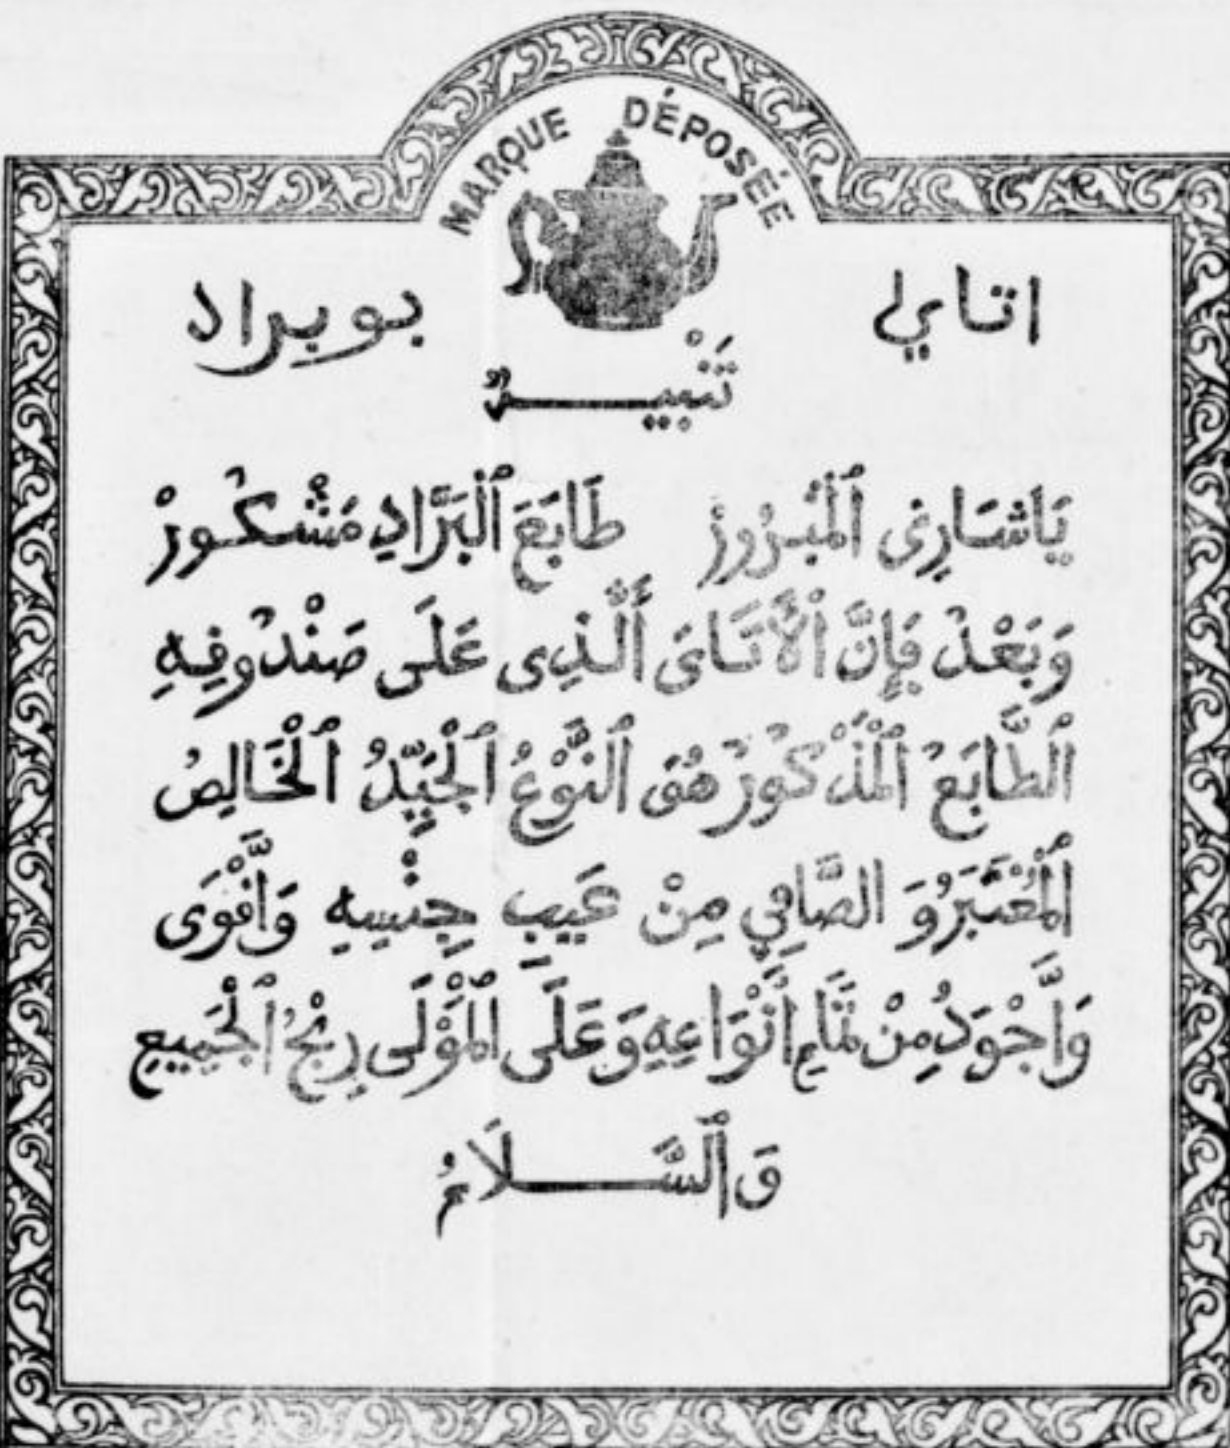 MARQUE DÉPOSÉE
اتاي بوبراد
تَنْبِيـــهٌ
يَاشَارِى ٱلْمَبْرُوزْ طَابَعَ ٱلْبَرَّادِ مَشْكُورْ
وَبَعْدُ فَإِنَّ ٱلْأَتَاىَ ٱلَّذِى عَلَى صَنْدُوقِهِ
ٱلطَّابَعُ ٱلْمَذْكُورُ هُوَ ٱلنَّوْعُ ٱلْجَيِّدُ ٱلْخَالِصُ
ٱلْمُعْتَبَرُ وَ الصَّافِي مِنْ عَيبِ جِنْسِهِ وَأَقْوَى
وَأَجْوَدُ مِنْ أَنْوَاعِهِ وَعَلَى ٱلْمَوْلَى رِبْحُ ٱلْجَمِيعِ
وَ ٱلسَّـــلَامُ